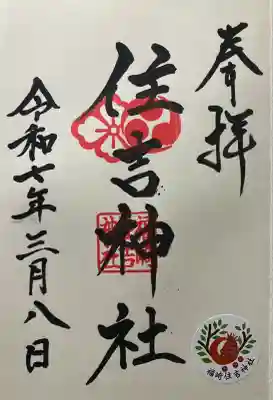 奉拝
住吉神社
令和七年三月八日
福崎住吉神社